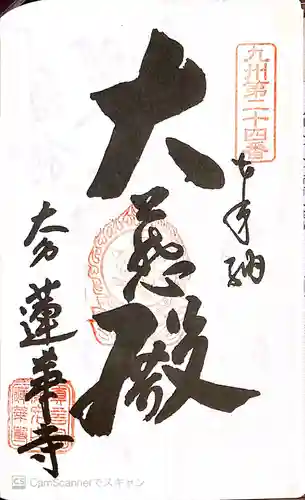 九州第二十四番
奉納
大悲殿
大分
蓮華寺
CamScannerでスキャン